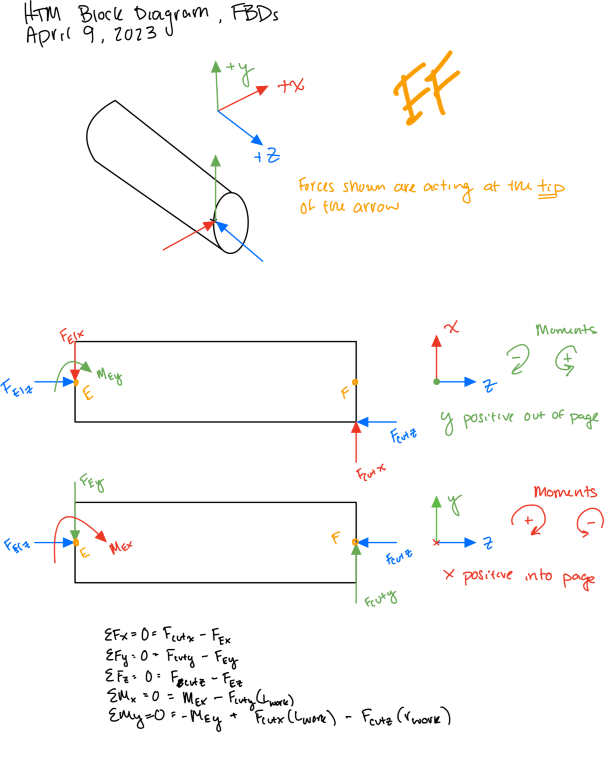 HTM Block Diagram, FBDs
April 9, 2023
EF
+y
+x
+z
Forces shown are acting at the tip
of the arrow
FE1x
MEy
FE1z
E
F
Fcutz
Fcutx
x
z
Moments
-
+
y positive out of page
FEy
FE1z
E
MEx
F
Fcutz
Fcuty
y
z
Moments
+
-
x positive into page
ΣFx = 0 = Fcutx - FEx
ΣFy = 0 = Fcuty - FEy
ΣFz = 0 = Fcutz - FEz
ΣMx = 0 = MEx - Fcuty(Lwork)
ΣMy = 0 = -MEy + Fcutx(Lwork) - Fcutz(rwork)